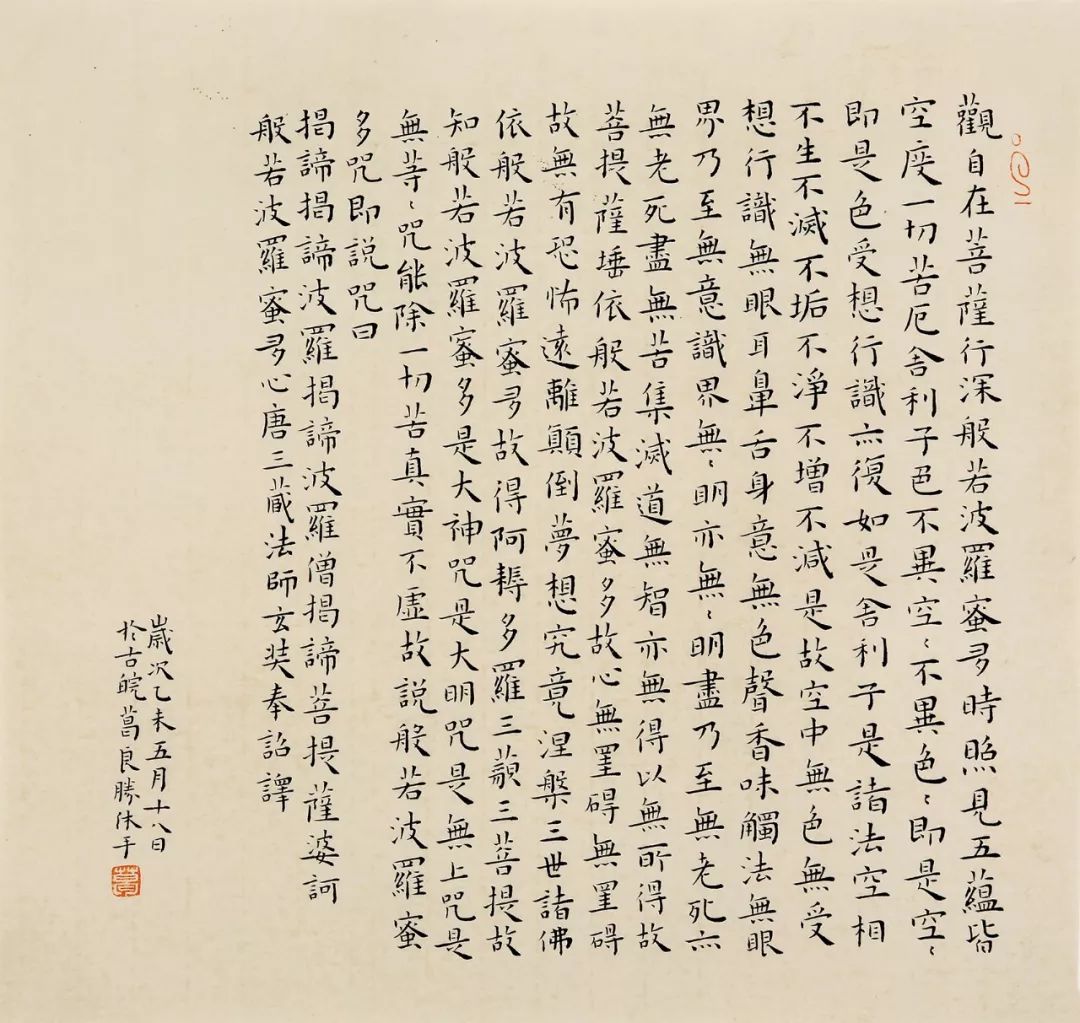 觀自在菩薩行深般若波羅蜜多時照見五蘊皆
空度一切苦厄舍利子色不異空〻不異色〻即是空〻
即是色受想行識亦復如是舍利子是諸法空相
不生不滅不垢不淨不增不減是故空中無色無受
想行識無眼耳鼻舌身意無色聲香味觸法無眼
界乃至無意識界無〻明亦無〻明盡乃至無老死亦
無老死盡無苦集滅道無智亦無得以無所得故
菩提薩埵依般若波羅蜜多故心無罣礙無罣碍
故無有恐怖遠離顛倒夢想究竟涅槃三世諸佛
依般若波羅蜜多故得阿耨多羅三藐三菩提故
知般若波羅蜜多是大神咒是大明咒是無上咒是
無等〻咒能除一切苦真實不虛故說般若波羅蜜
多咒即說咒曰
揭諦揭諦波羅揭諦波羅僧揭諦菩提薩婆訶
般若波羅蜜多心唐三藏法師玄奘奉詔譯
歲次乙未五月十八日
於古皖葛良勝沐手